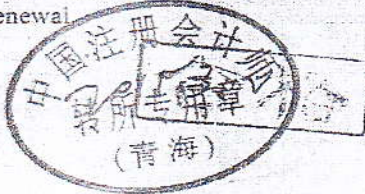 enewal
中国注册会计师
转所专用章
(青海)